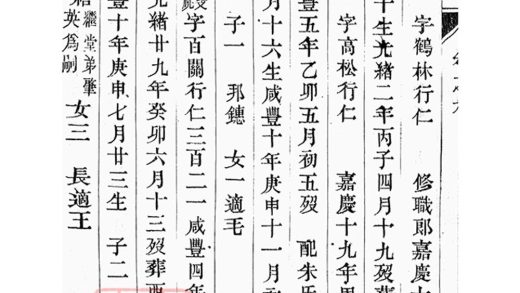 字鶴林行仁 修職郎嘉慶十
十生光緒二年丙子四月十九歿葬
字高松行仁 嘉慶十九年甲
豐五年乙卯五月初五歿 配朱氏
月十六生咸豐十年庚申十一月
子一 邦鏸 女一適毛
字百關行仁三百二一咸豐四年
光緒廿九年癸卯六月十三歿葬西
豐十年庚申七月廿三生 子二
繼堂弟肇英爲嗣 女三 長適王